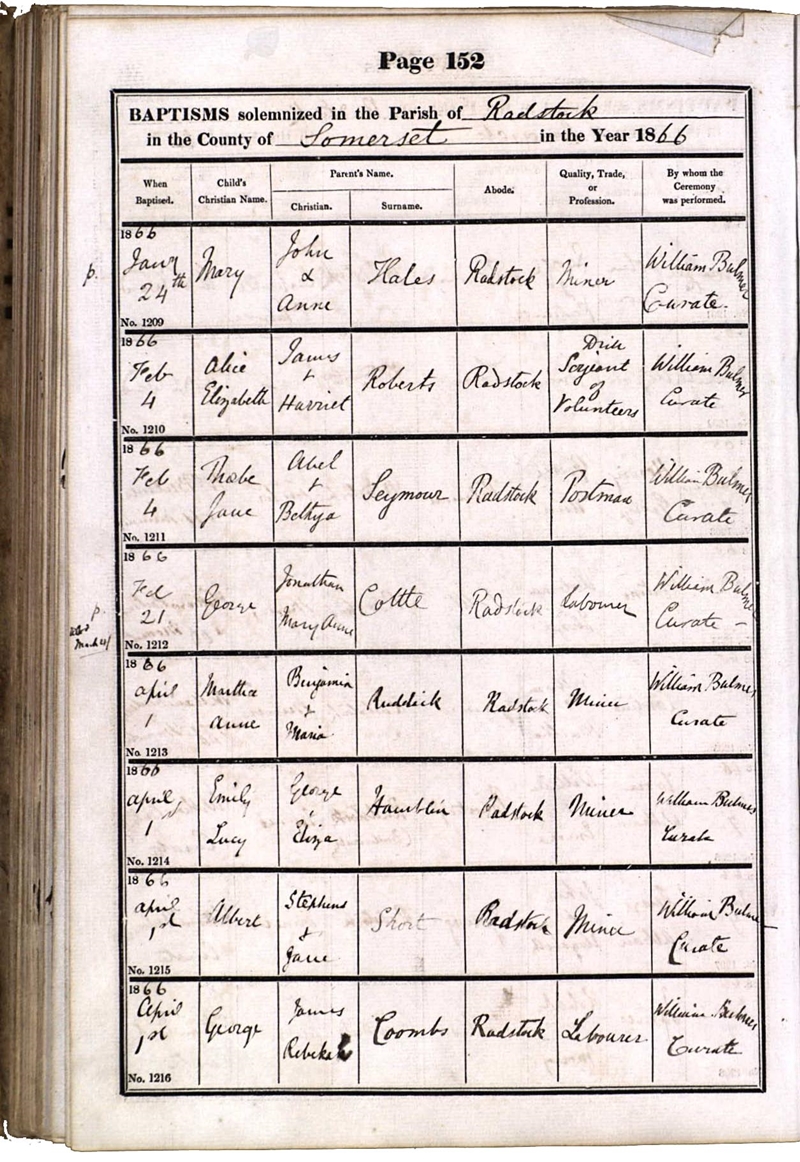 Page 152
BAPTISMS solemnized in the Parish of Radstock
in the County of Somerset in the Year 1866
When Baptised.
Child's Christian Name.
Parent's Name.
Christian.
Surname.
Abode.
Quality, Trade, or Profession.
By whom the Ceremony was performed.
1866
p.
Jany
24th
Mary
John
&
Anne
Hales
Radstock
Miner
William Bulmer
Curate
No. 1209
1866
Feb
4
Alice
Elizabeth
James
+
Harriet
Roberts
Radstock
Drill
Serjeant
of
Volunteers
William Bulmer
Curate
No. 1210
1866
Feb
4
Phobe
Jane
Abel
+
Bethya
Seymour
Radstock
Postman
William Bulmer
Curate
No. 1211
1866
p.
Feb
21
George
Jonathan
Mary Anne
Cottle
Radstock
Labourer
William Bulmer
Curate
No. 1212
1866
April
1
Martha
Anne
Benjamin
+
Maria
Ruddick
Radstock
Miner
William Bulmer
Curate
No. 1213
1866
April
1
Emily
Lucy
George
Eliza
Hamblin
Radstock
Miner
William Bulmer
Curate
No. 1214
1866
April
1st
Albert
Stephens
+
Jane
Short
Radstock
Miner
William Bulmer
Curate
No. 1215
1866
April
1st
George
James
Rebekah
Coombs
Radstock
Labourer
William Bulmer
Curate
No. 1216